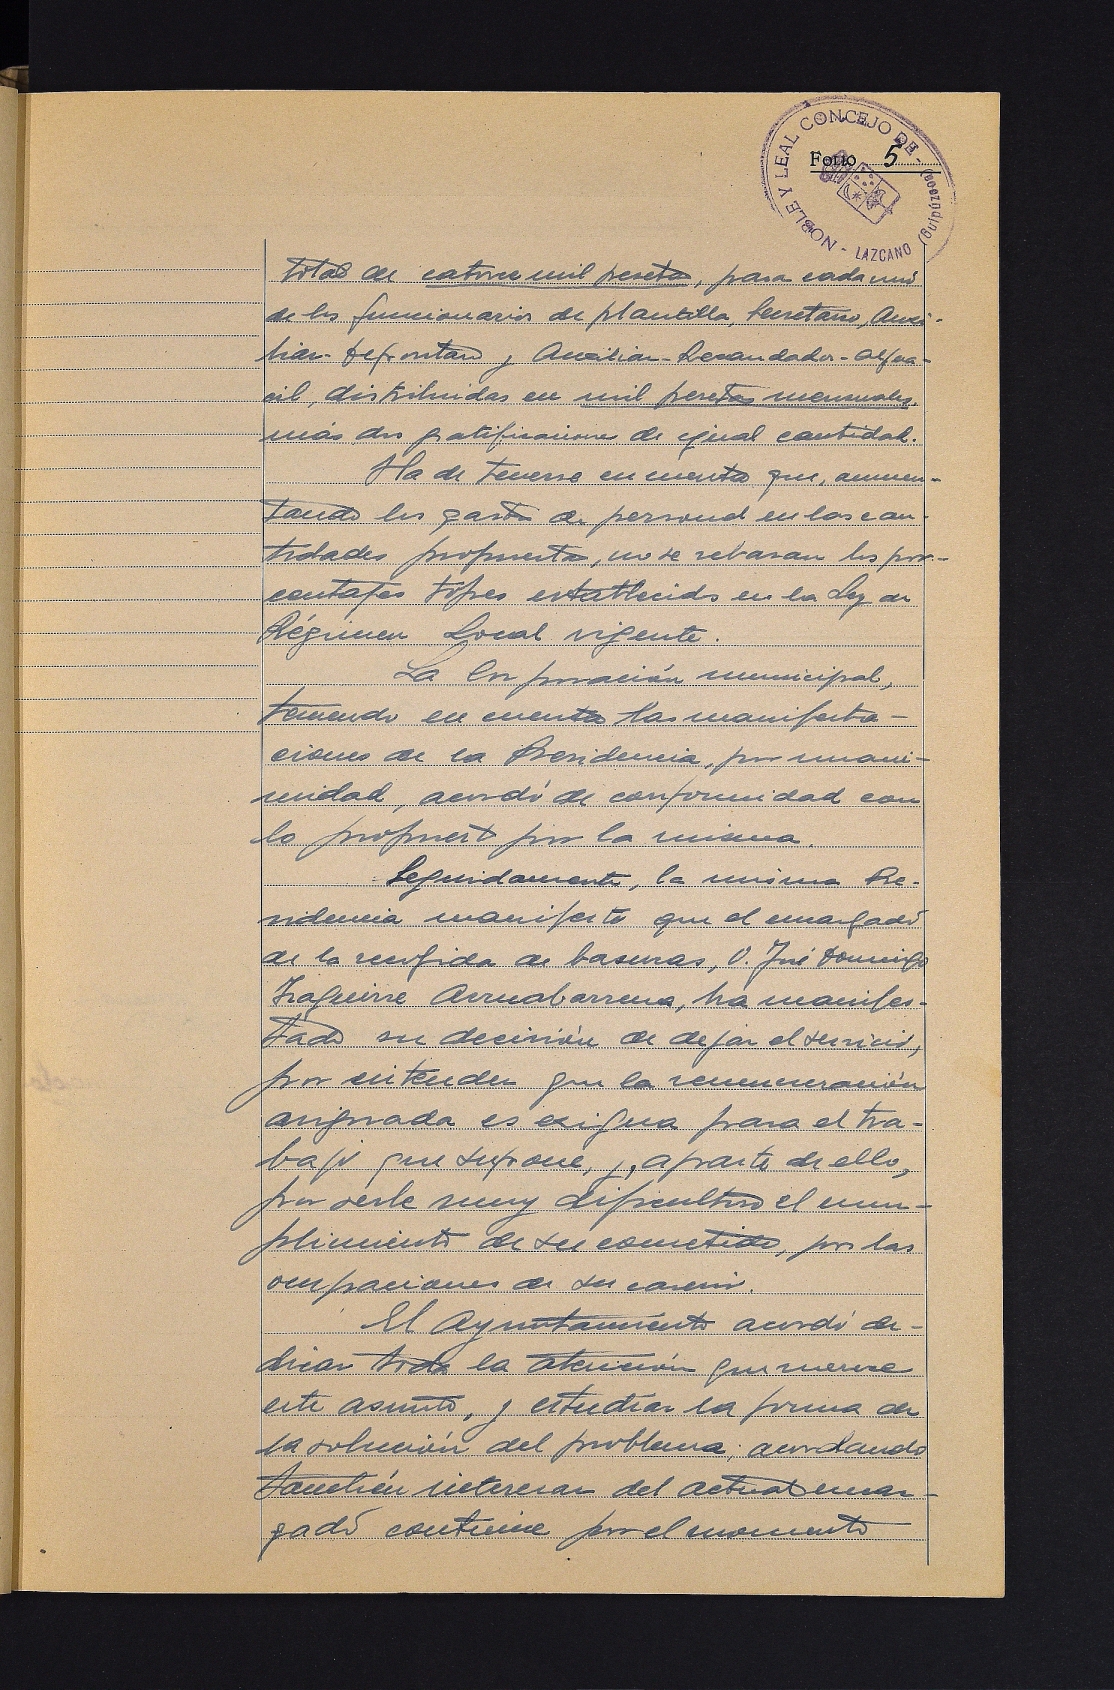 NOBLE Y LEAL CONCEJO DE - LAZCANO (Guipúzcoa)
Folio 5
total de catorce mil pesetas, para cada uno
de los funcionarios de plantilla, Secretario, Auxi-
liar-Depositario y Auxiliar-Recaudador-Algua-
cil, distribuidas en mil pesetas mensuales,
más dos gratificaciones de igual cantidad.
Ha de tenerse en cuenta que, aumen-
tando los gastos de personal en las can-
tidades propuestas, no se rebasan los por-
centajes topes establecidos en la Ley de
Régimen Local vigente.
La Corporación municipal,
teniendo en cuenta las manifesta-
ciones de la Presidencia, por unani-
midad, acordó de conformidad con
lo propuesto por la misma.
Seguidamente, la misma Pre-
sidencia manifestó que el encargado
de la recogida de basuras, D. José Domingo
Izaguirre Arruabarrena, ha manifes-
tado su decisión de dejar el servicio,
por entender que la remuneración
asignada es exigua para el tra-
bajo que supone, y, aparte de ello,
por serle muy dificultoso el cum-
plimiento de su cometido, por las
ocupaciones de su caserío.
El Ayuntamiento acordó de-
dicar toda la atención que merece
este asunto, y estudiar la forma de
la solución del problema; acordando
también interesar del actual encar-
gado continúe por el momento